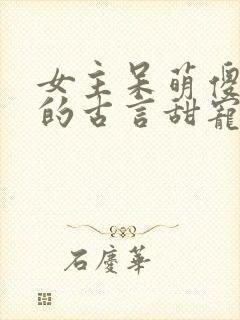 女主呆萌傻
的古言甜寵
石慶華